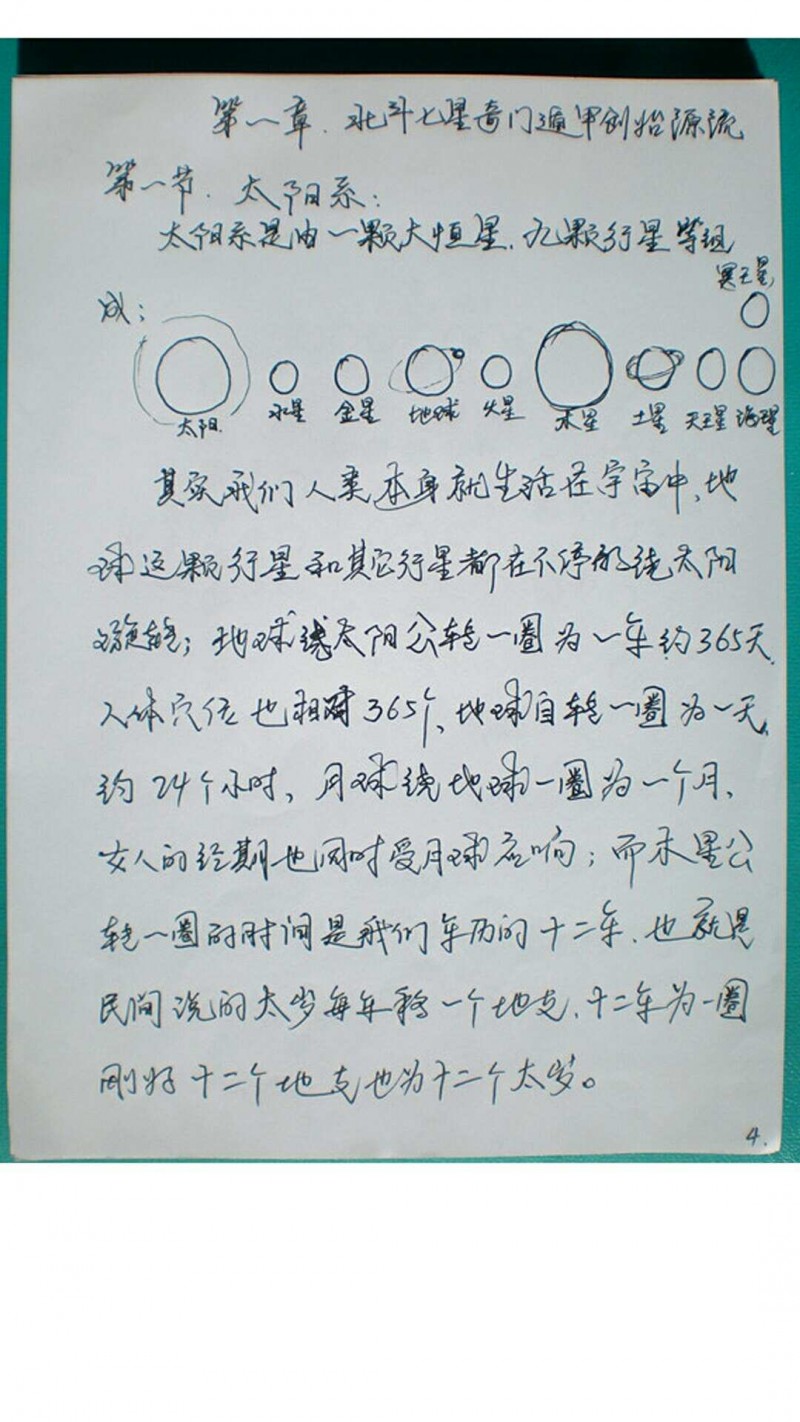 第一章．北斗七星奇门遁甲创始源流
第一节．太阳系：
太阳系是由一颗大恒星．九颗行星等组
冥王星
成；
太阳． 水星 金星 地球 火星 木星 土星 天王星 海王星
其实我们人类本身就生活在宇宙中、地
球这颗行星和其它行星都在不停的绕太阳
旋转；地球绕太阳公转一圈为一年约365天．
人体穴位也相对365个、地球自转一圈为一天、
约24个小时、月球绕地球一圈为一个月、
女人的经期也同时受月球应响；而木星公
转一圈的时间是我们年历的十二年．也就是
民间说的太岁每年移一个地支．十二年为一圈
刚好十二个地支也为十二个太岁。
4．